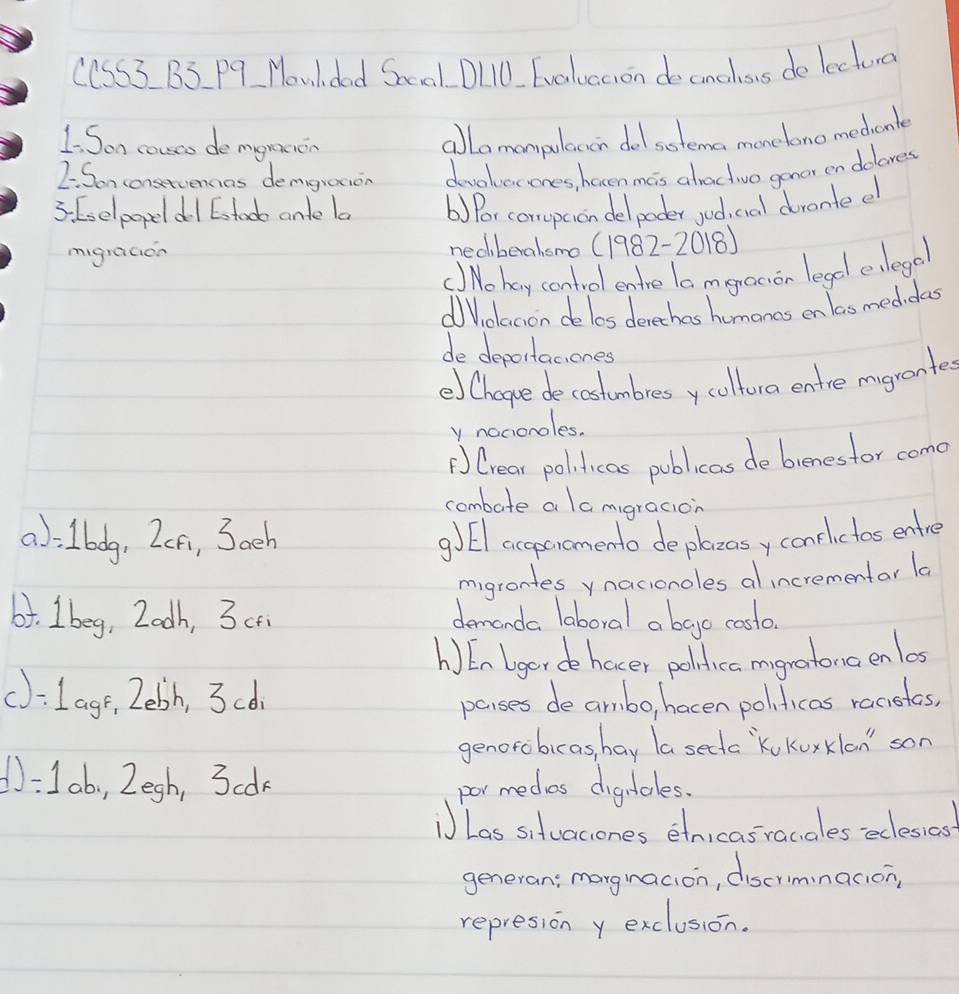 CCSS3_B3_P9_Movilidad Social_DL10_Evaluación de analisis de lectura
1-. Son causas de migración
2-. Son consecuencias de migración
3-. Es el papel del Estado ante la
migración
a) La manipulación del sistema monetario mediante
devaluaciones, hacen más atractivo ganar en dolares
b) Por corrupción del poder judicial durante el
neoliberalismo (1982-2018)
c) No hay control entre la migración legal e ilegal
d) Violación de los derechos humanos en las medidas
de deportaciones
e) Choque de costumbres y cultura entre migrantes
y nacionales.
f) Crear politicas publicas de bienestar como
combate a la migracion
g) El acaparamento de plazas y conflictos entre
migrantes y nacionales al incrementar la
demanda laboral a bajo costo.
h) En lgar de hacer politica migratoria en los
paises de arribo, hacen politicas racistas,
genofobicas, hay la secta "Kukuxklan" son
por medios digitales.
i) Las situaciones étnicas-raciales-eclesiast
generan: marginación, discriminación,
represión y exclusión.
a)-. 1bdg, 2cfi, 3aeh
b)-. 1beg, 2adh, 3cfi
c)-. 1agf, 2ebh, 3cdi
d)-. 1abi, 2egh, 3cdf